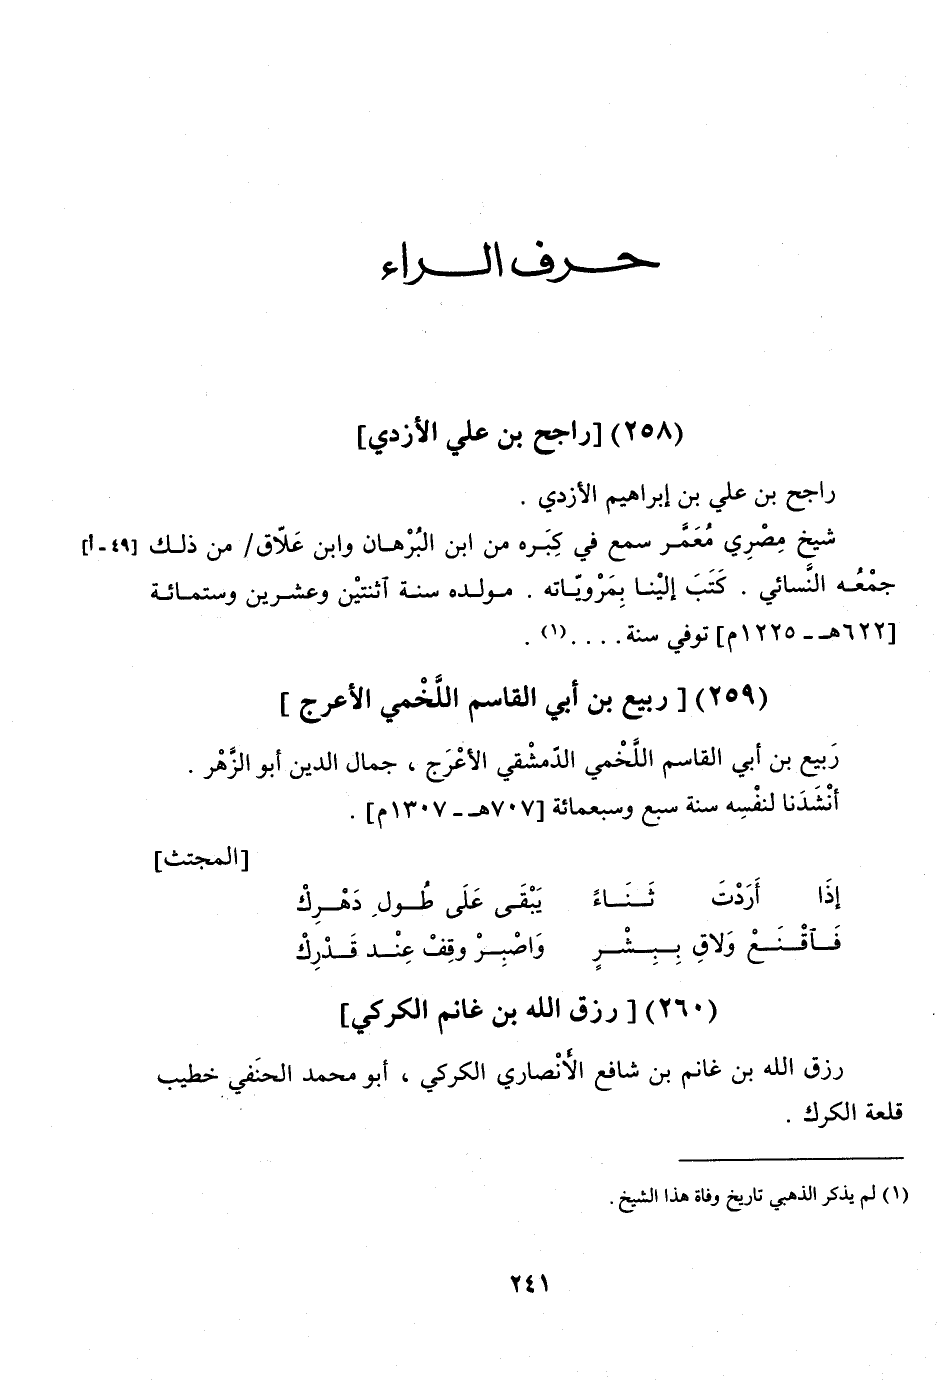 حرف الراء
(٢٥٨) [راجح بن علي الأزدي]
راجح بن علي بن إبراهيم الأزدي .
شيخ مِصْرِي مُعَمَّر سمع في كِبَره من ابن البُرْهان وابن عَلاّق/ من ذلك [٤٩ - أ]
جمْعُه النَّسائي . كَتَبَ إليْنا بِمَرْويّاته . مولده سنة آثنتيْن وعشرين وستمائة
[٦٢٢هـ - ١٢٢٥م] توفي سنة . . . .(١) .
(٢٥٩) [ ربيع بن أبي القاسم اللَّخْمي الأعرج ]
رَبيع بن أبي القاسم اللَّخْمي الدّمشْقي الأعْرَج ، جمال الدين أبو الزَّهْر .
أنْشَدَنا لنفْسِه سنة سبع وسبعمائة [٧٠٧هـ - ١٣٠٧م] .
[المجتث]
إذَا أَرَدْتَ ثَنَاءً يَبْقَى عَلَى طُولِ دَهْرِكْ
فَٱقْنَعْ وَلاقِ بِبِشْرٍ وَاصْبِرْ وقِفْ عِنْد قَدْرِكْ
(٢٦٠) [ رزق الله بن غانم الكركي]
رزق الله بن غانم بن شافع الأَنْصاري الكركي ، أبو محمد الحنَفي خطيب
قلعة الكرك .
(١) لم يذكر الذهبي تاريخ وفاة هذا الشيخ .
٢٤١